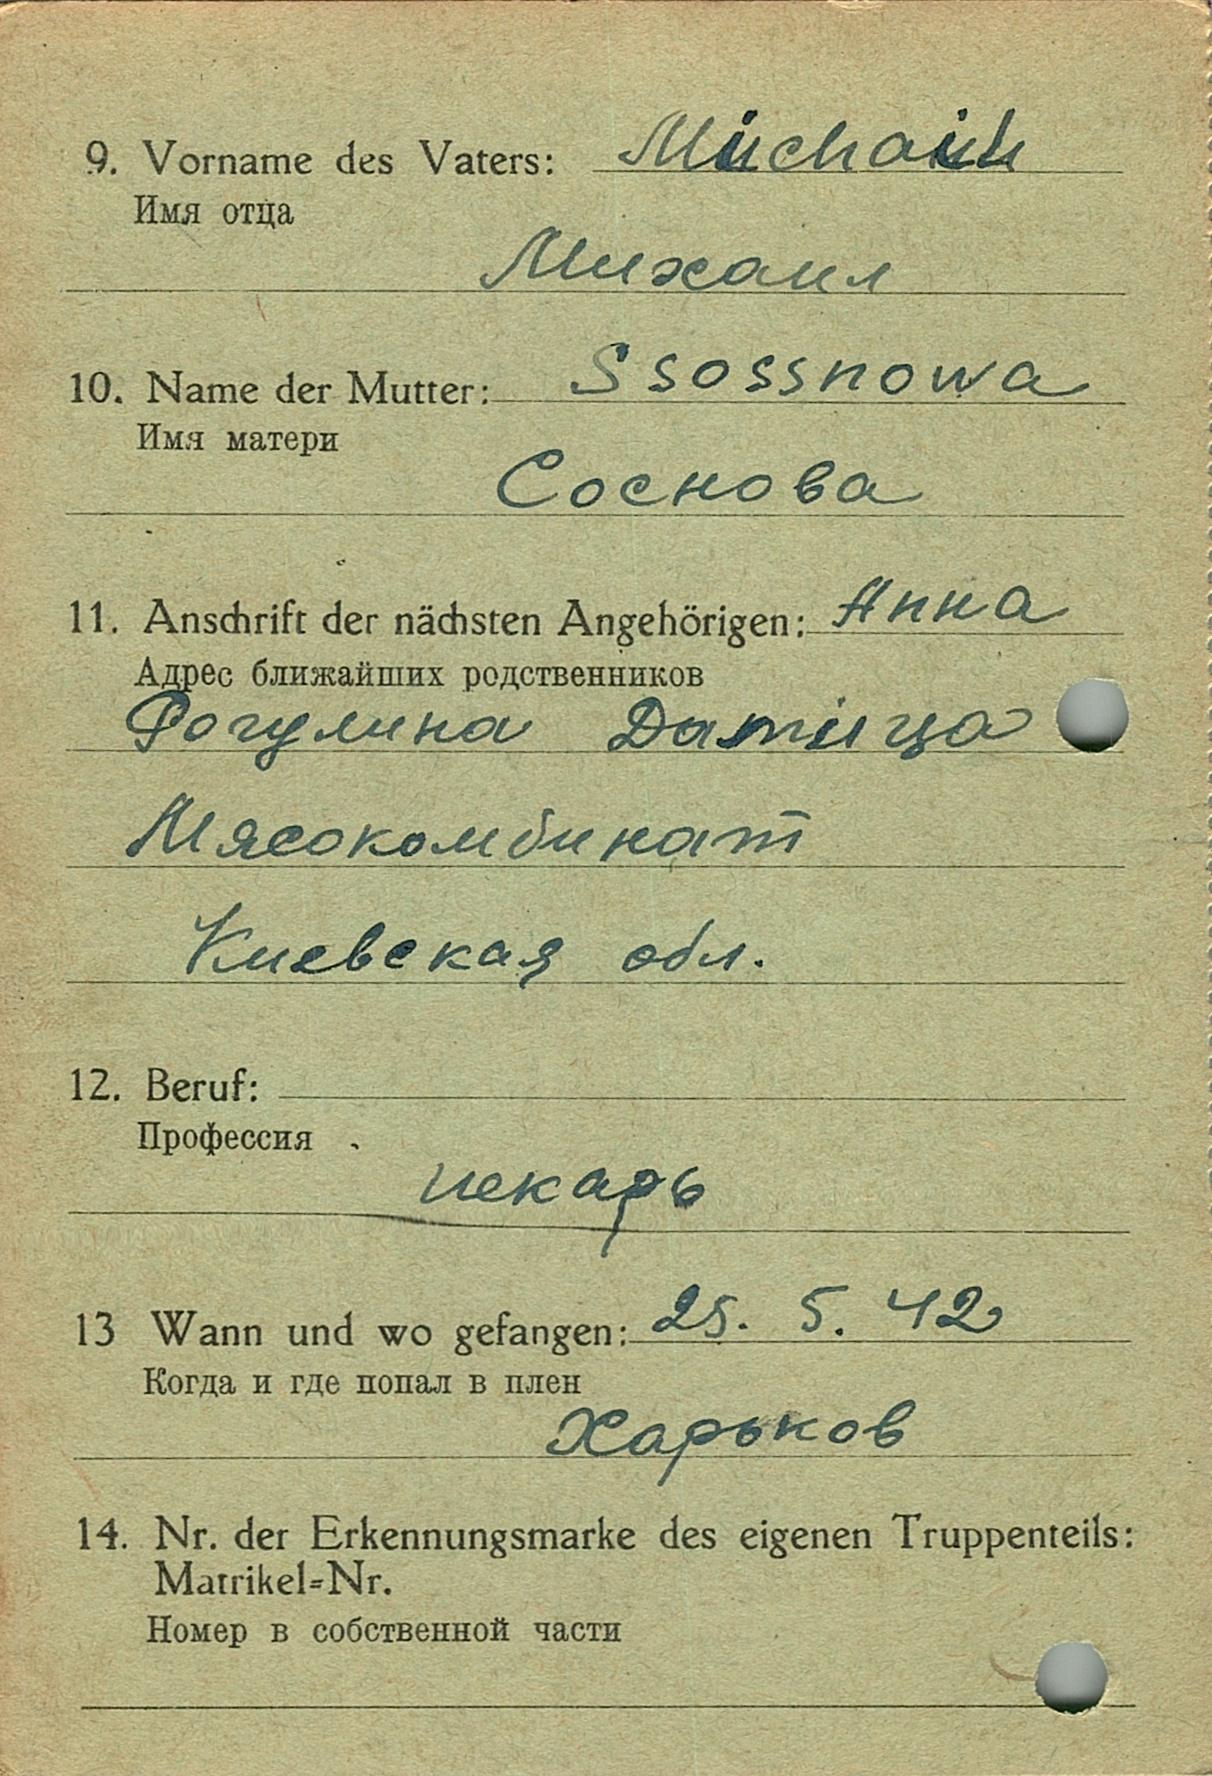 9. Vorname des Vaters: Michail
Имя отца
Михаил
10. Name der Mutter: Ssossnowa
Имя матери
Соснова
11. Anschrift der nächsten Angehörigen: Анна
Адрес ближайших родственников
Рогулина
Мясокомбинат
Киевская обл.
12. Beruf:
Профессия
пекарь
13 Wann und wo gefangen: 25. 5. 42
Когда и где попал в плен
Харьков
14. Nr. der Erkennungsmarke des eigenen Truppenteils:
Matrikel=Nr.
Номер в собственной части